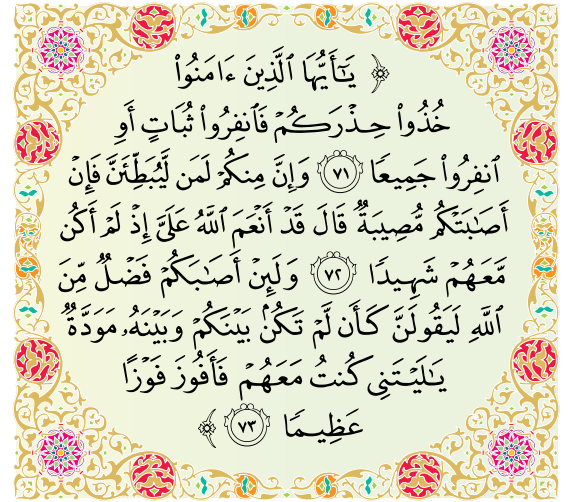 ﴿ يَـٰٓأَيُّهَا ٱلَّذِينَ ءَامَنُوا۟
خُذُوا۟ حِذْرَكُمْ فَٱنفِرُوا۟ ثُبَاتٍ أَوِ
ٱنفِرُوا۟ جَمِيعًا ٧١ وَإِنَّ مِنكُمْ لَمَن لَّيُبَطِّئَنَّ فَإِنْ
أَصَـٰبَتْكُم مُّصِيبَةٌ قَالَ قَدْ أَنْعَمَ ٱللَّهُ عَلَىَّ إِذْ لَمْ أَكُن
مَّعَهُمْ شَهِيدًا ٧٢ وَلَئِنْ أَصَـٰبَكُمْ فَضْلٌ مِّنَ
ٱللَّهِ لَيَقُولَنَّ كَأَن لَّمْ تَكُنۢ بَيْنَكُمْ وَبَيْنَهُۥ مَوَدَّةٌ
يَـٰلَيْتَنِى كُنتُ مَعَهُمْ فَأَفُوزَ فَوْزًا
عَظِيمًا ٧٣ ﴾